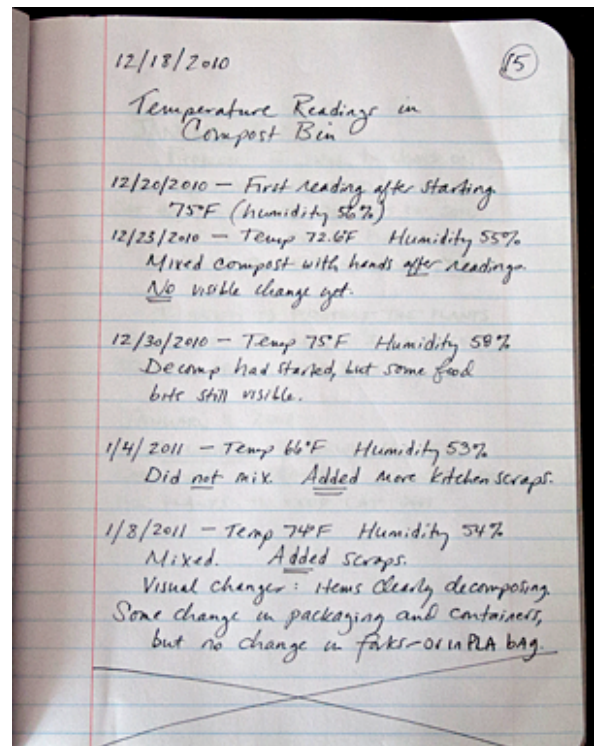 12/18/2010 15
Temperature Readings in
Compost Bin
12/20/2010 — First reading after starting
75°F (humidity 56%)
12/23/2010 — Temp 72.6°F Humidity 55%
Mixed compost with hands after readings.
No visible change yet.
12/30/2010 — Temp 75°F Humidity 58%
Decomp had started, but some food
bits still visible.
1/4/2011 — Temp 66°F Humidity 53%
Did not mix. Added more kitchen scraps.
1/8/2011 — Temp 74°F Humidity 54%
Mixed. Added scraps.
Visual changes: items clearly decomposing.
Some change in packaging and containers,
but no change in forks—or in PLA bag.